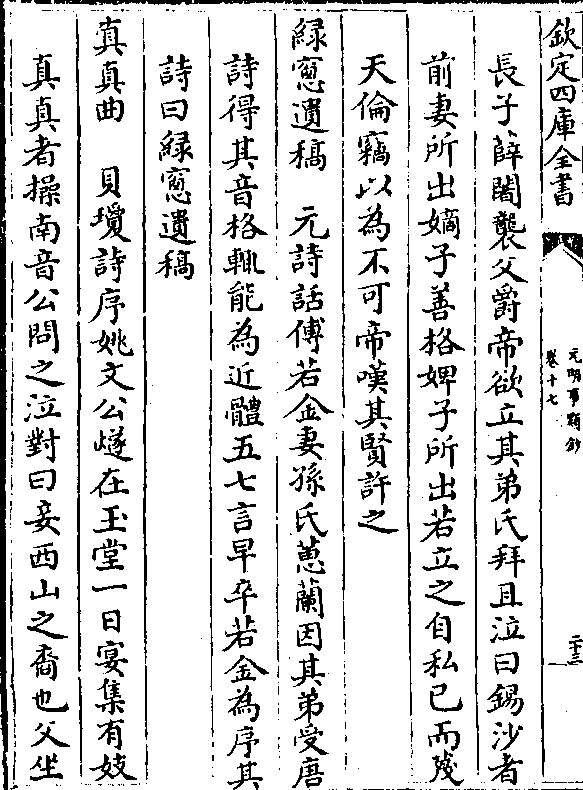 欽定四庫全書
元明事類鈔
卷十七
二十三
長子薛闍襲父爵帝欲立其弟氏拜且泣曰錫沙者
前妻所出嫡子善格婢子所出若立之自私已而殘
天倫竊以為不可帝嘆其賢許之
緑窻遺稿　元詩話傅若金妻孫氏蕙蘭因其弟受唐
詩得其音格輒能為近體五七言早卒若金為序其
詩曰緑窻遺稿
真真曲　貝瓊詩序姚文公燧在玉堂一日宴集有妓
真真者操南音公問之泣對曰妾西山之裔也父坐